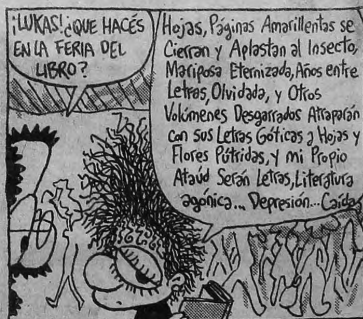 ¡LUKAS! ¿QUE HACÉS
EN LA FERIA DEL
LIBRO?
Hojas, Páginas Amarillentas se
Cierran y Aplastan al Insecto,
Mariposa Eternizada, Años entre
Letras, Olvidada, y Otros
Volúmenes Desgarrados Atraparán
con sus Letras Góticas a Hojas y
Flores Pútridas, y mi Propio
Ataúd Serán Letras, Literatura
agónica... Depresión... Caída